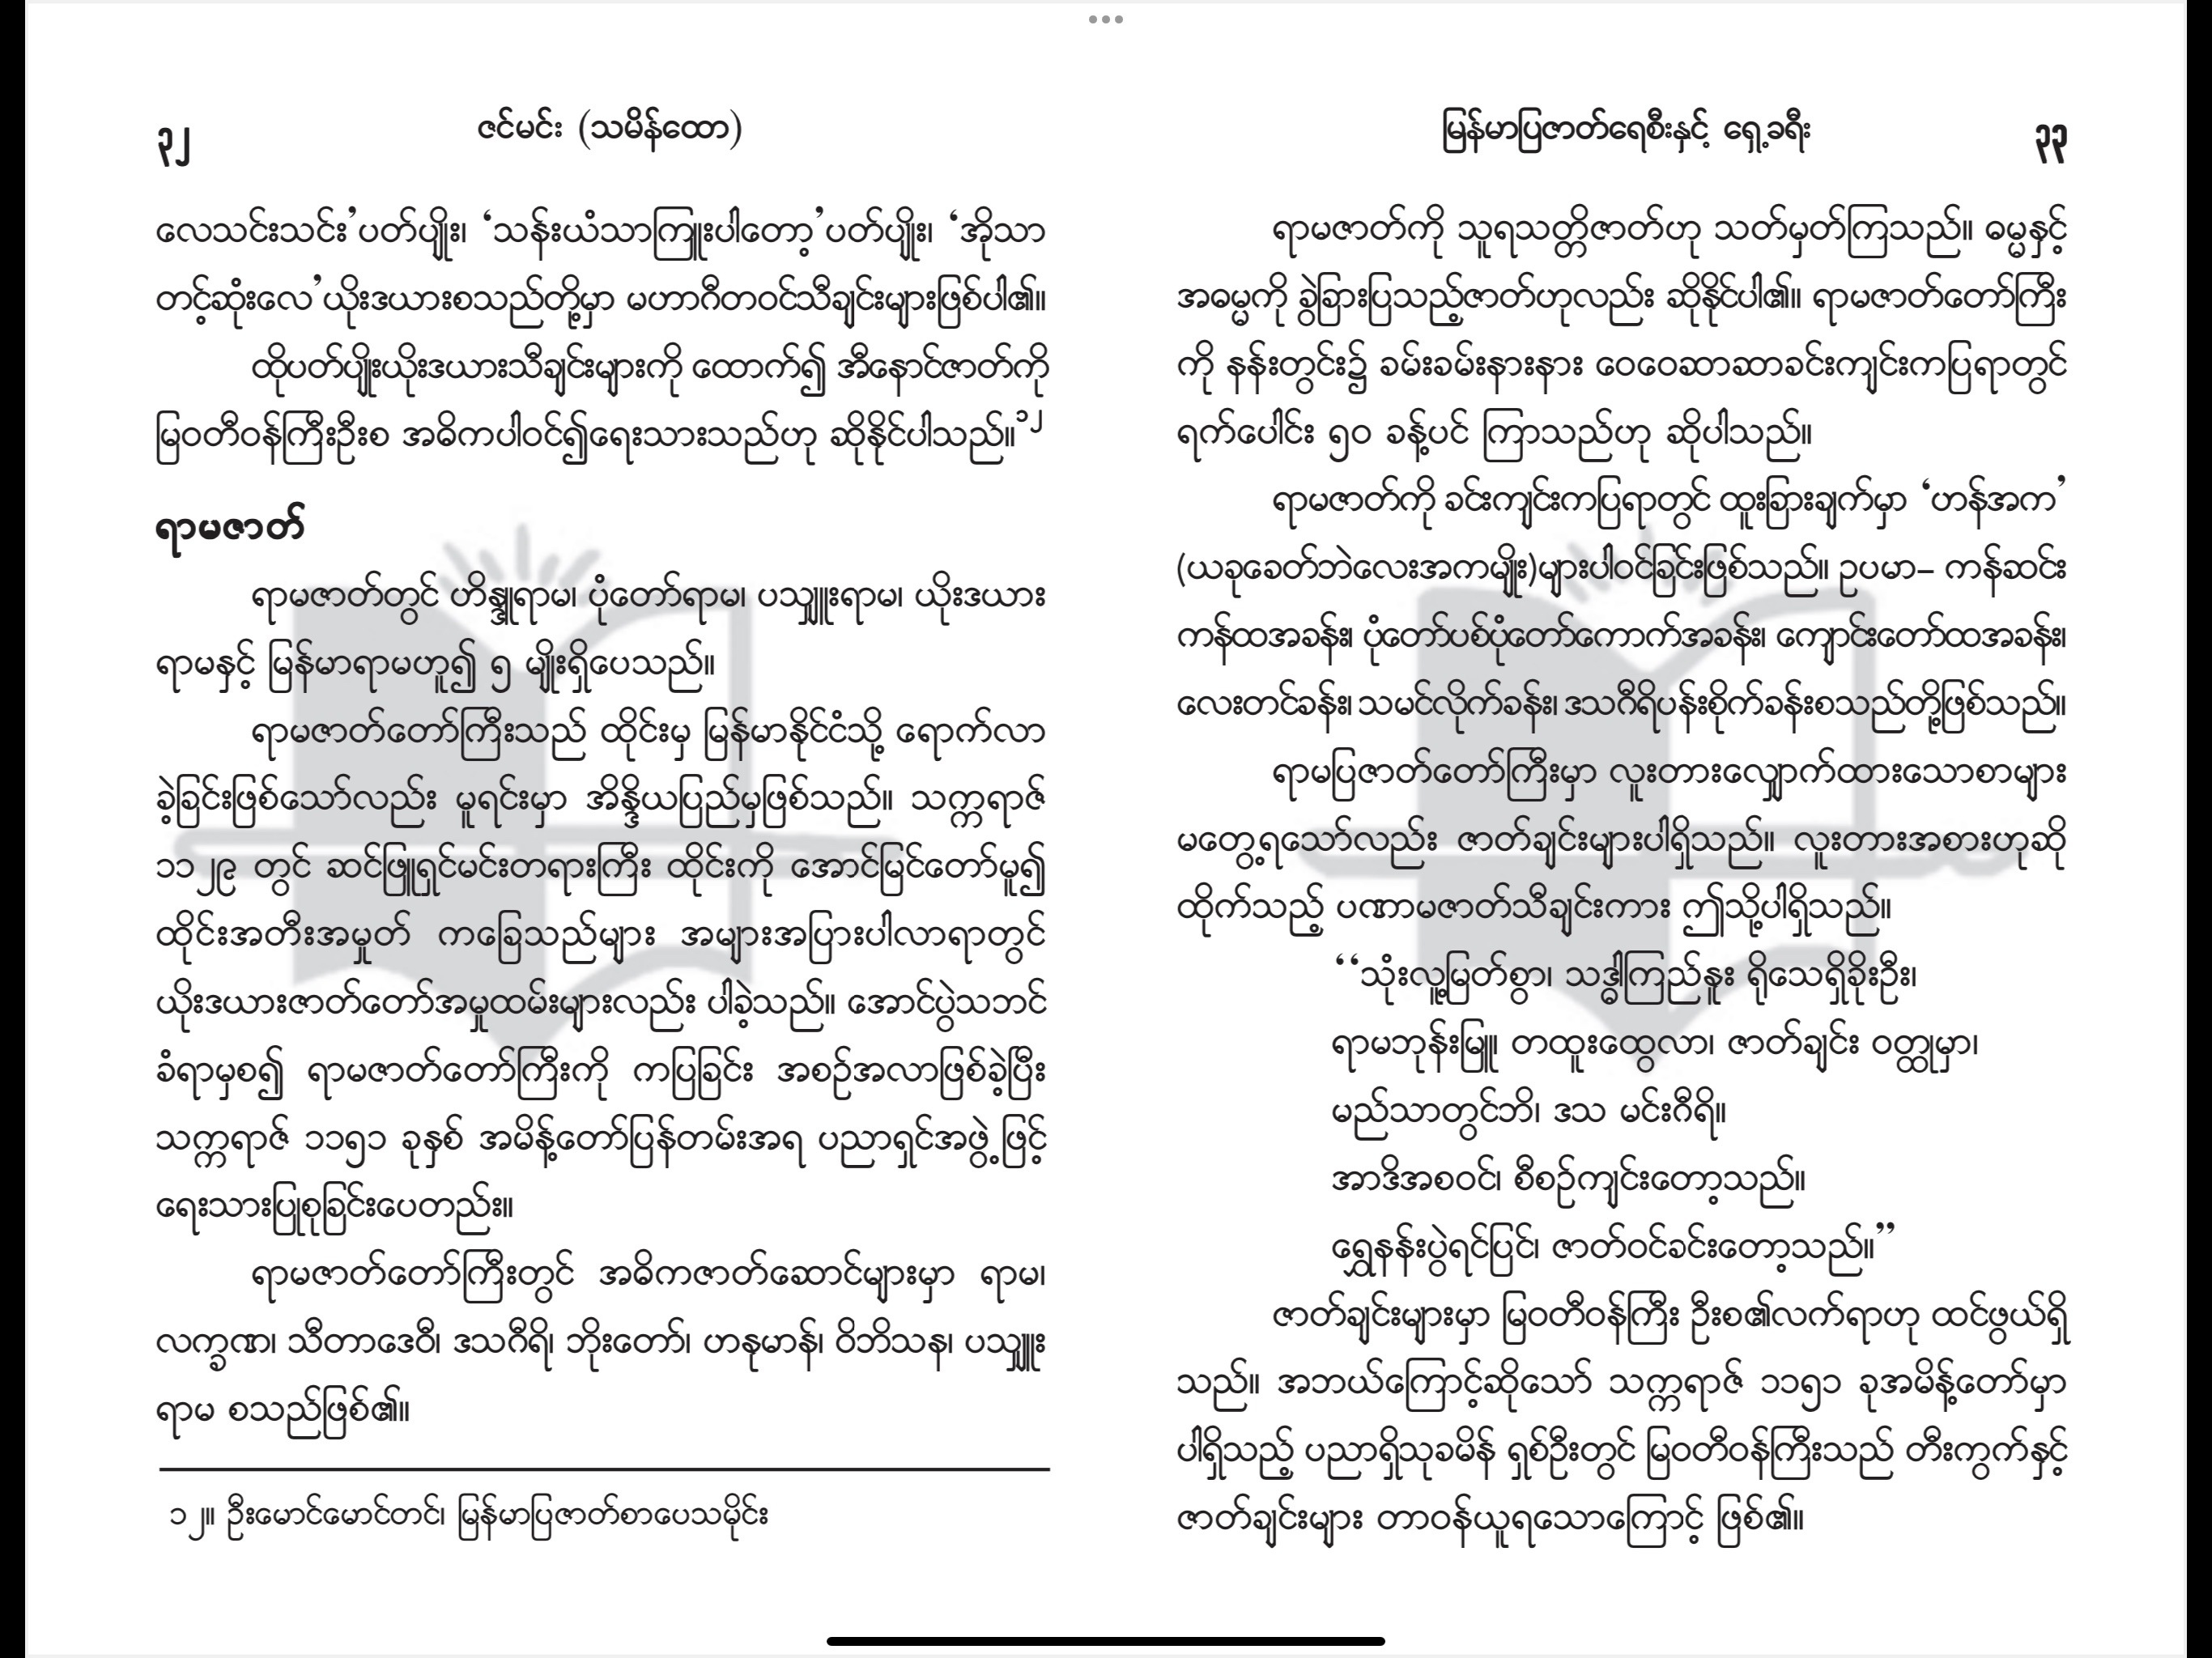 ၃၂
ဇင်မင်း (သမိန်ထော)
လေသင်းသင်း’ပတ်ပျိုး၊ ‘သန်းယံသာကြူးပါတော့’ပတ်ပျိုး၊ ‘အိုသာ
တင့်ဆုံးလေ’ယိုးဒယားစသည်တို့မှာ မဟာဂီတဝင်သီချင်းများဖြစ်ပါ၏။
ထိုပတ်ပျိုးယိုးဒယားသီချင်းများကို ထောက်၍ အီနောင်ဇာတ်ကို
မြဝတီဝန်ကြီးဦးစ အဓိကပါဝင်၍ရေးသားသည်ဟု ဆိုနိုင်ပါသည်။၁၂
ရာမဇာတ်
ရာမဇာတ်တွင် ဟိန္ဒူရာမ၊ ပုံတော်ရာမ၊ ပသျှူးရာမ၊ ယိုးဒယား
ရာမနှင့် မြန်မာရာမဟူ၍ ၅ မျိုးရှိပေသည်။
ရာမဇာတ်တော်ကြီးသည် ထိုင်းမှ မြန်မာနိုင်ငံသို့ ရောက်လာ
ခဲ့ခြင်းဖြစ်သော်လည်း မူရင်းမှာ အိန္ဒိယပြည်မှဖြစ်သည်။ သက္ကရာဇ်
၁၁၂၉ တွင် ဆင်ဖြူရှင်မင်းတရားကြီး ထိုင်းကို အောင်မြင်တော်မူ၍
ထိုင်းအတီးအမှုတ် ကခြေသည်များ အများအပြားပါလာရာတွင်
ယိုးဒယားဇာတ်တော်အမှုထမ်းများလည်း ပါခဲ့သည်။ အောင်ပွဲသဘင်
ခံရာမှစ၍ ရာမဇာတ်တော်ကြီးကို ကပြခြင်း အစဉ်အလာဖြစ်ခဲ့ပြီး
သက္ကရာဇ် ၁၁၅၁ ခုနှစ် အမိန့်တော်ပြန်တမ်းအရ ပညာရှင်အဖွဲ့ဖြင့်
ရေးသားပြုစုခြင်းပေတည်း။
ရာမဇာတ်တော်ကြီးတွင် အဓိကဇာတ်ဆောင်များမှာ ရာမ၊
လက္ခဏ၊ သီတာဒေဝီ၊ ဒသဂီရိ၊ ဘိုးတော်၊ ဟနုမာန်၊ ဝိဘိသန၊ ပသျှူး
ရာမ စသည်ဖြစ်၏။
၁၂။ ဦးမောင်မောင်တင်၊ မြန်မာပြဇာတ်စာပေသမိုင်း
မြန်မာပြဇာတ်ရေစီးနှင့် ရှေ့ခရီး
၃၃
ရာမဇာတ်ကို သူရသတ္တိဇာတ်ဟု သတ်မှတ်ကြသည်။ ဓမ္မနှင့်
အဓမ္မကို ခွဲခြားပြသည့်ဇာတ်ဟုလည်း ဆိုနိုင်ပါ၏။ ရာမဇာတ်တော်ကြီး
ကို နန်းတွင်း၌ ခမ်းခမ်းနားနား ဝေဝေဆာဆာခင်းကျင်းကပြရာတွင်
ရက်ပေါင်း ၅၀ ခန့်ပင် ကြာသည်ဟု ဆိုပါသည်။
ရာမဇာတ်ကို ခင်းကျင်းကပြရာတွင် ထူးခြားချက်မှာ ‘ဟန်အက’
(ယခုခေတ်ဘဲလေးအကမျိုး)များပါဝင်ခြင်းဖြစ်သည်။ ဥပမာ– ကန်ဆင်း
ကန်ထအခန်း၊ ပုံတော်ပစ်ပုံတော်ကောက်အခန်း၊ ကျောင်းတော်ထအခန်း၊
လေးတင်ခန်း၊ သမင်လိုက်ခန်း၊ ဒသဂီရိပန်းစိုက်ခန်းစသည်တို့ဖြစ်သည်။
ရာမပြဇာတ်တော်ကြီးမှာ လူးတားလျှောက်ထားသောစာများ
မတွေ့ရသော်လည်း ဇာတ်ချင်းများပါရှိသည်။ လူးတားအစားဟုဆို
ထိုက်သည့် ပဏာမဇာတ်သီချင်းကား ဤသို့ပါရှိသည်။
‘‘သုံးလူ့မြတ်စွာ၊ သဒ္ဓါကြည်နူး ရိုသေရှိခိုးဦး၊
ရာမဘုန်းမြူ၊ တထူးထွေလာ၊ ဇာတ်ချင်း ဝတ္ထုမှာ၊
မည်သာတွင်ဘိ၊ ဒသ မင်းဂီရိ။
အာဒိအစဝင်၊ စီစဉ်ကျင်းတော့သည်။
ရွှေနန်းပွဲရင်ပြင်၊ ဇာတ်ဝင်ခင်းတော့သည်။’’
ဇာတ်ချင်းများမှာ မြဝတီဝန်ကြီး ဦးစ၏လက်ရာဟု ထင်ဖွယ်ရှိ
သည်။ အဘယ်ကြောင့်ဆိုသော် သက္ကရာဇ် ၁၁၅၁ ခုအမိန့်တော်မှာ
ပါရှိသည့် ပညာရှိသုခမိန် ရှစ်ဦးတွင် မြဝတီဝန်ကြီးသည် တီးကွက်နှင့်
ဇာတ်ချင်းများ တာဝန်ယူရသောကြောင့် ဖြစ်၏။